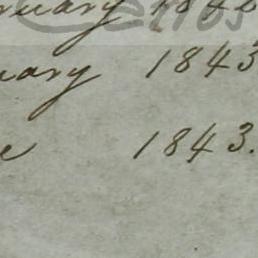 ruary 184
uary 1843
e 1843.